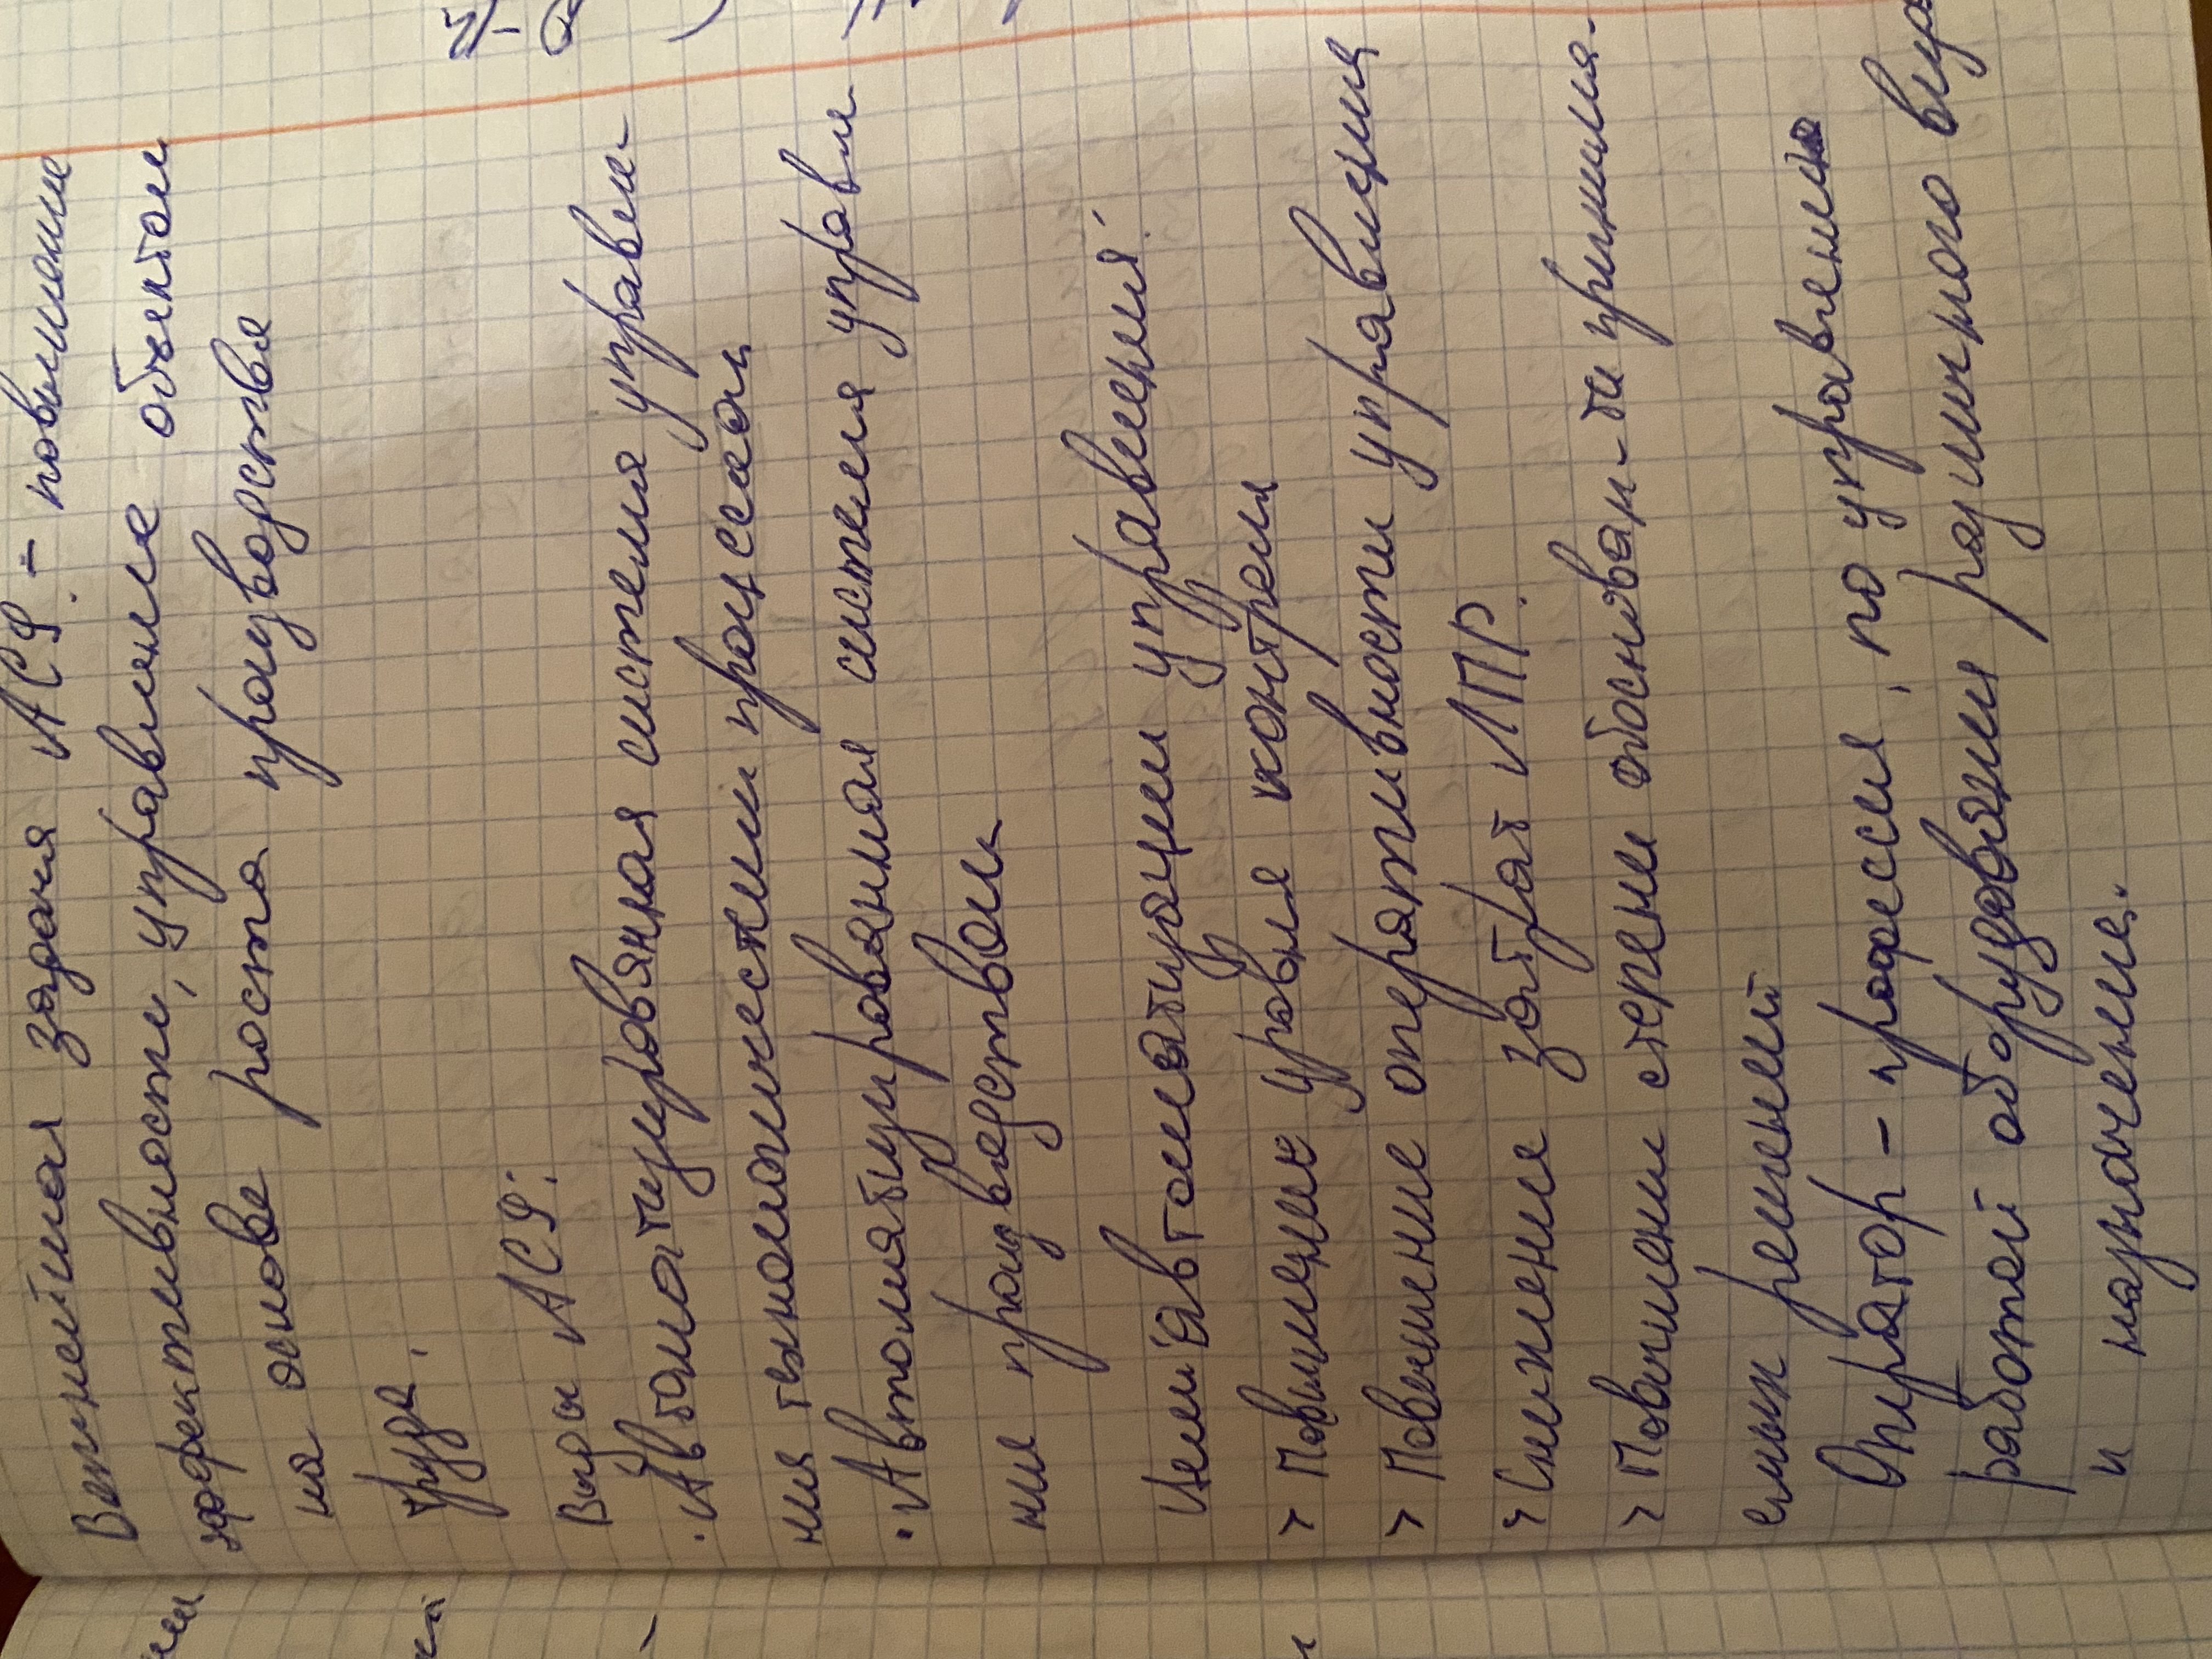 Важнейшая задача АСУ: - повышение
эффективности, управление объектом
на основе роста производства
труда.
Виды АСУ:
· Автоматизированная система управле-
ния технологически процессом
· Автоматизированная система управле
ние производством
Цели автоматизации управления:
> Повышение уровня контрем
> Повышение оперативности управления
> Снижение затрат ЛПР.
> Повышени степени обоснован-ти принима-
емых решений
Оператор - професси, по управлению
работой оборудовани различного вида
и назначение.